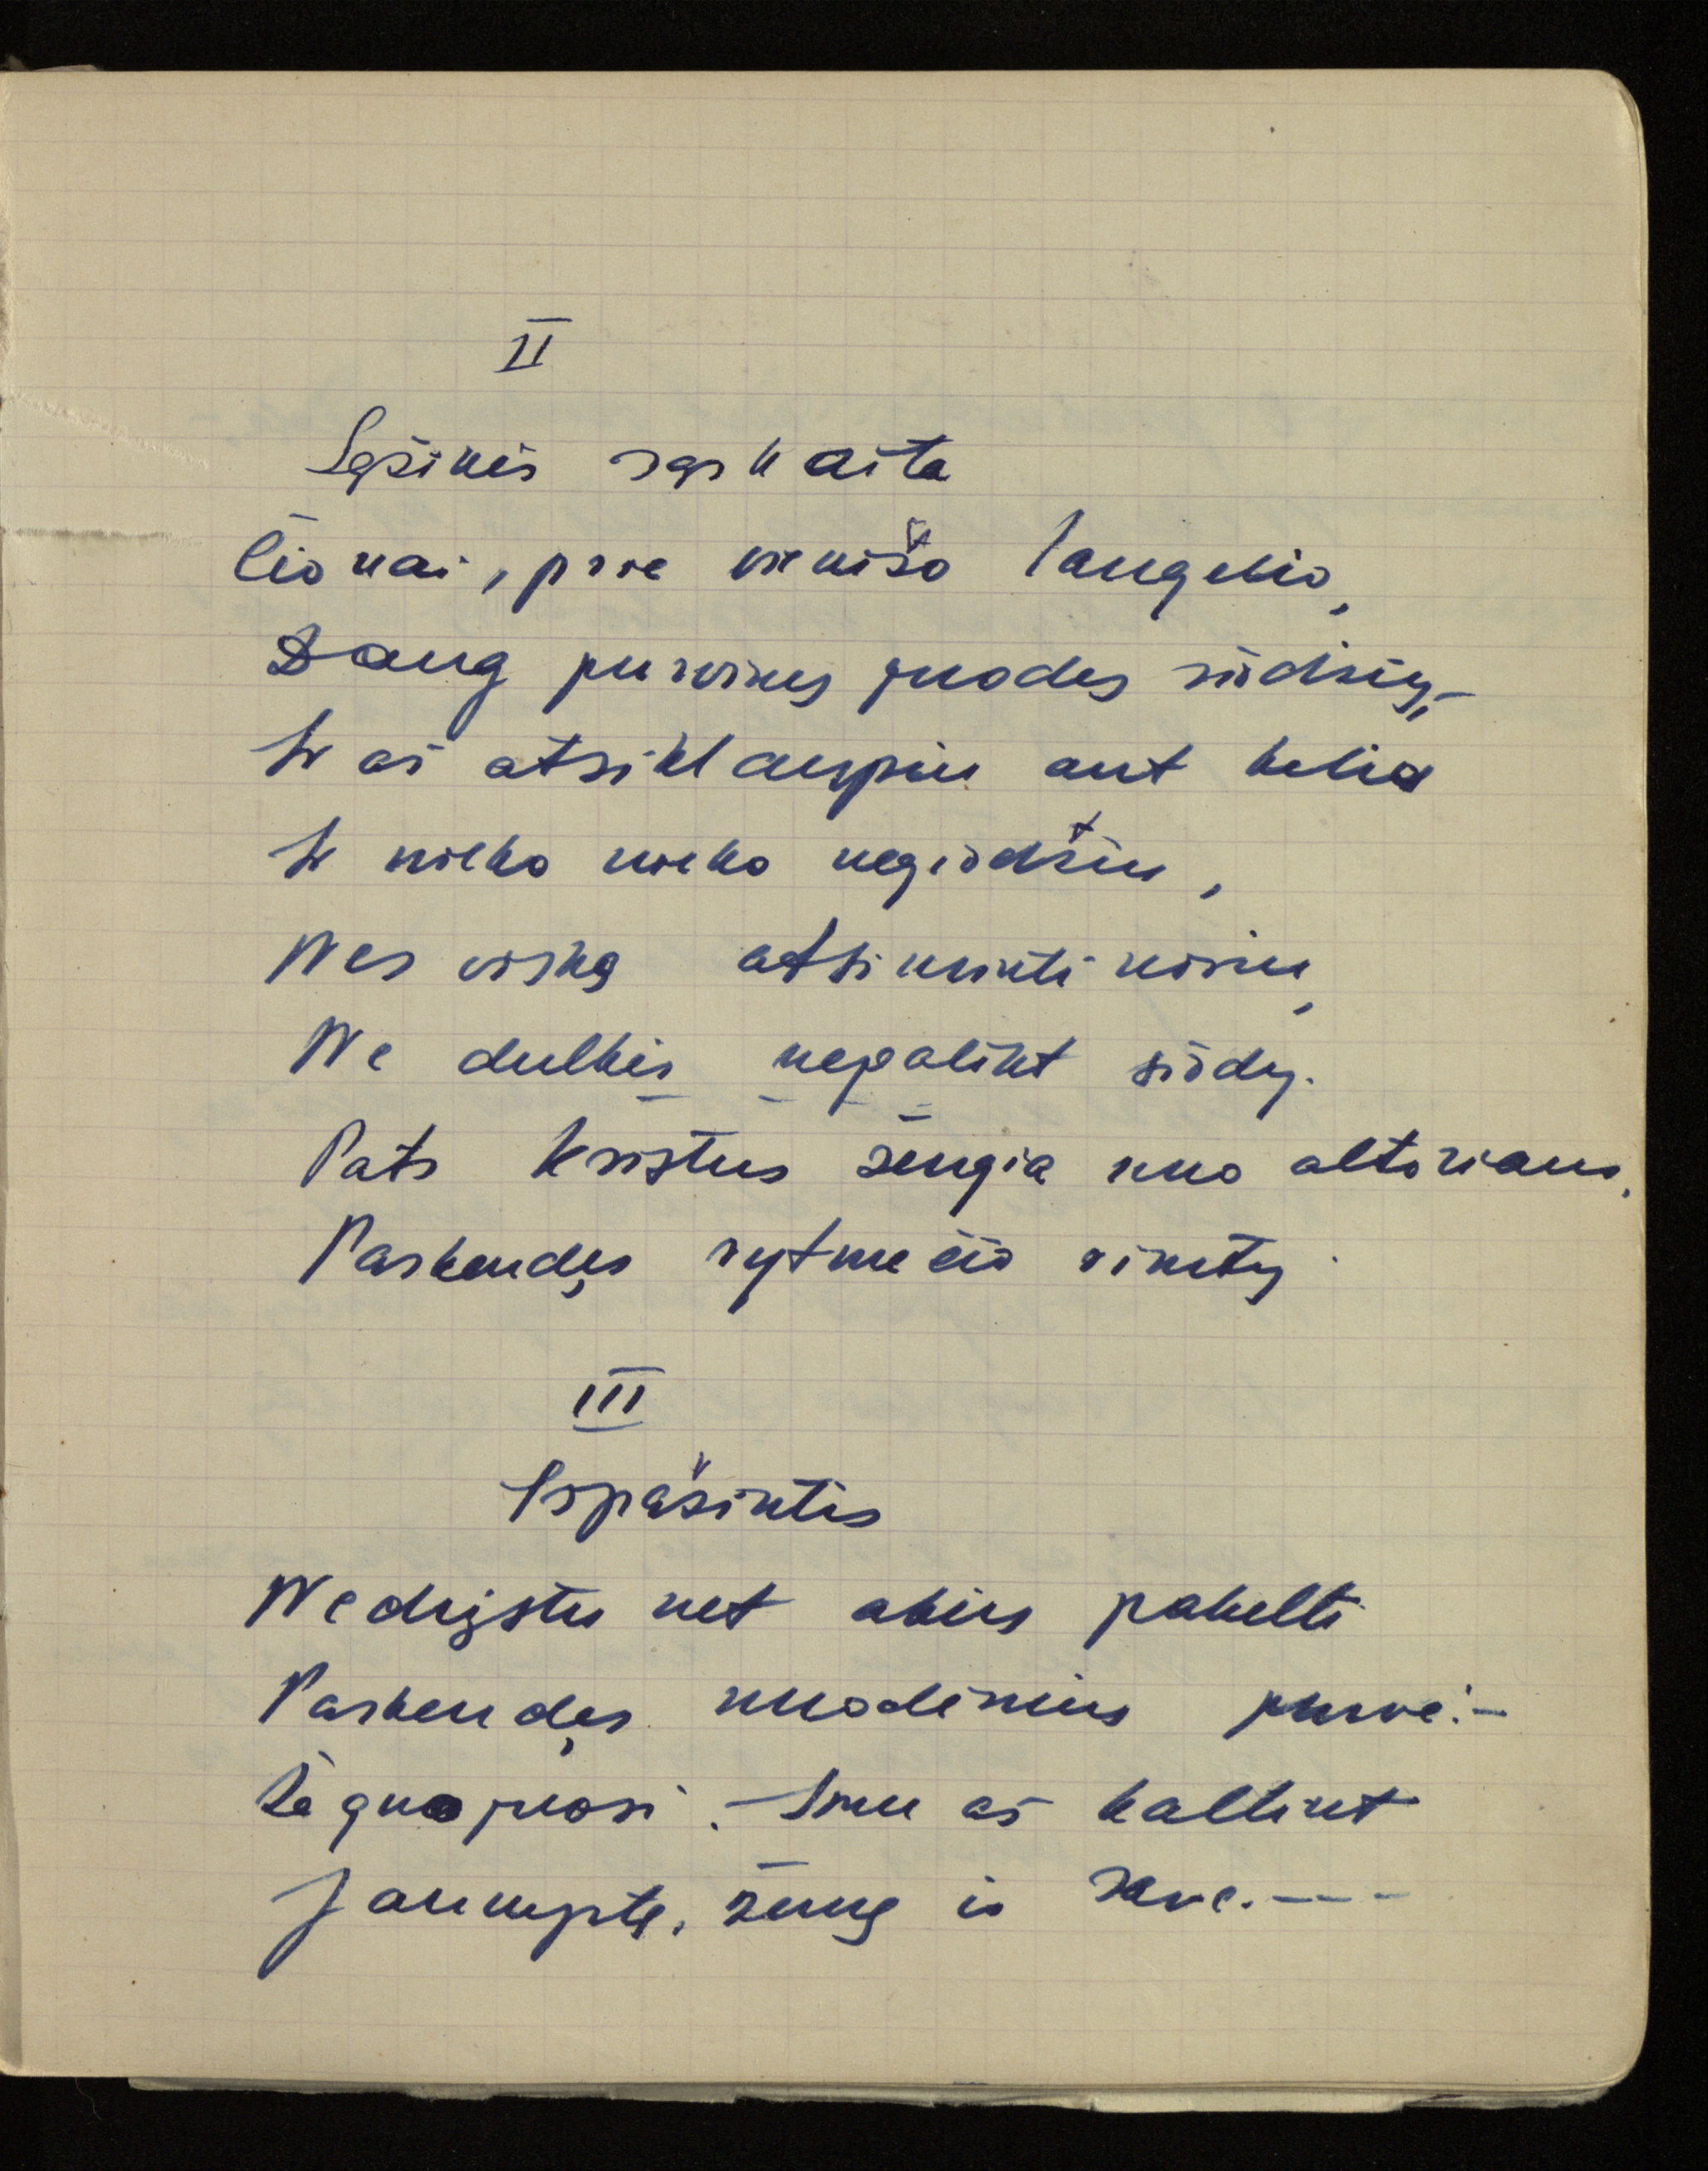 II
Sąžinės sąskaita
Čionai, prie vienišo langelio,
Daug purvinų juodęs žodžių, –
Ir aš atsiklaupiu ant kelio
Ir nieko nieko negirdžiu,
Nes viską atsiminti noriu,
Ne dulkės nepalikt širdy.
Pats Kristus žengia nuo altoriaus,
Paskendęs rytmečio rimty.
III
Išpažintis
Nedrįstu net akies pakelti
Paskendęs nuodėmių purve. –
Žegnojuosi. – Imu aš kaltint
Jaunystę, žemę ir save. – – –